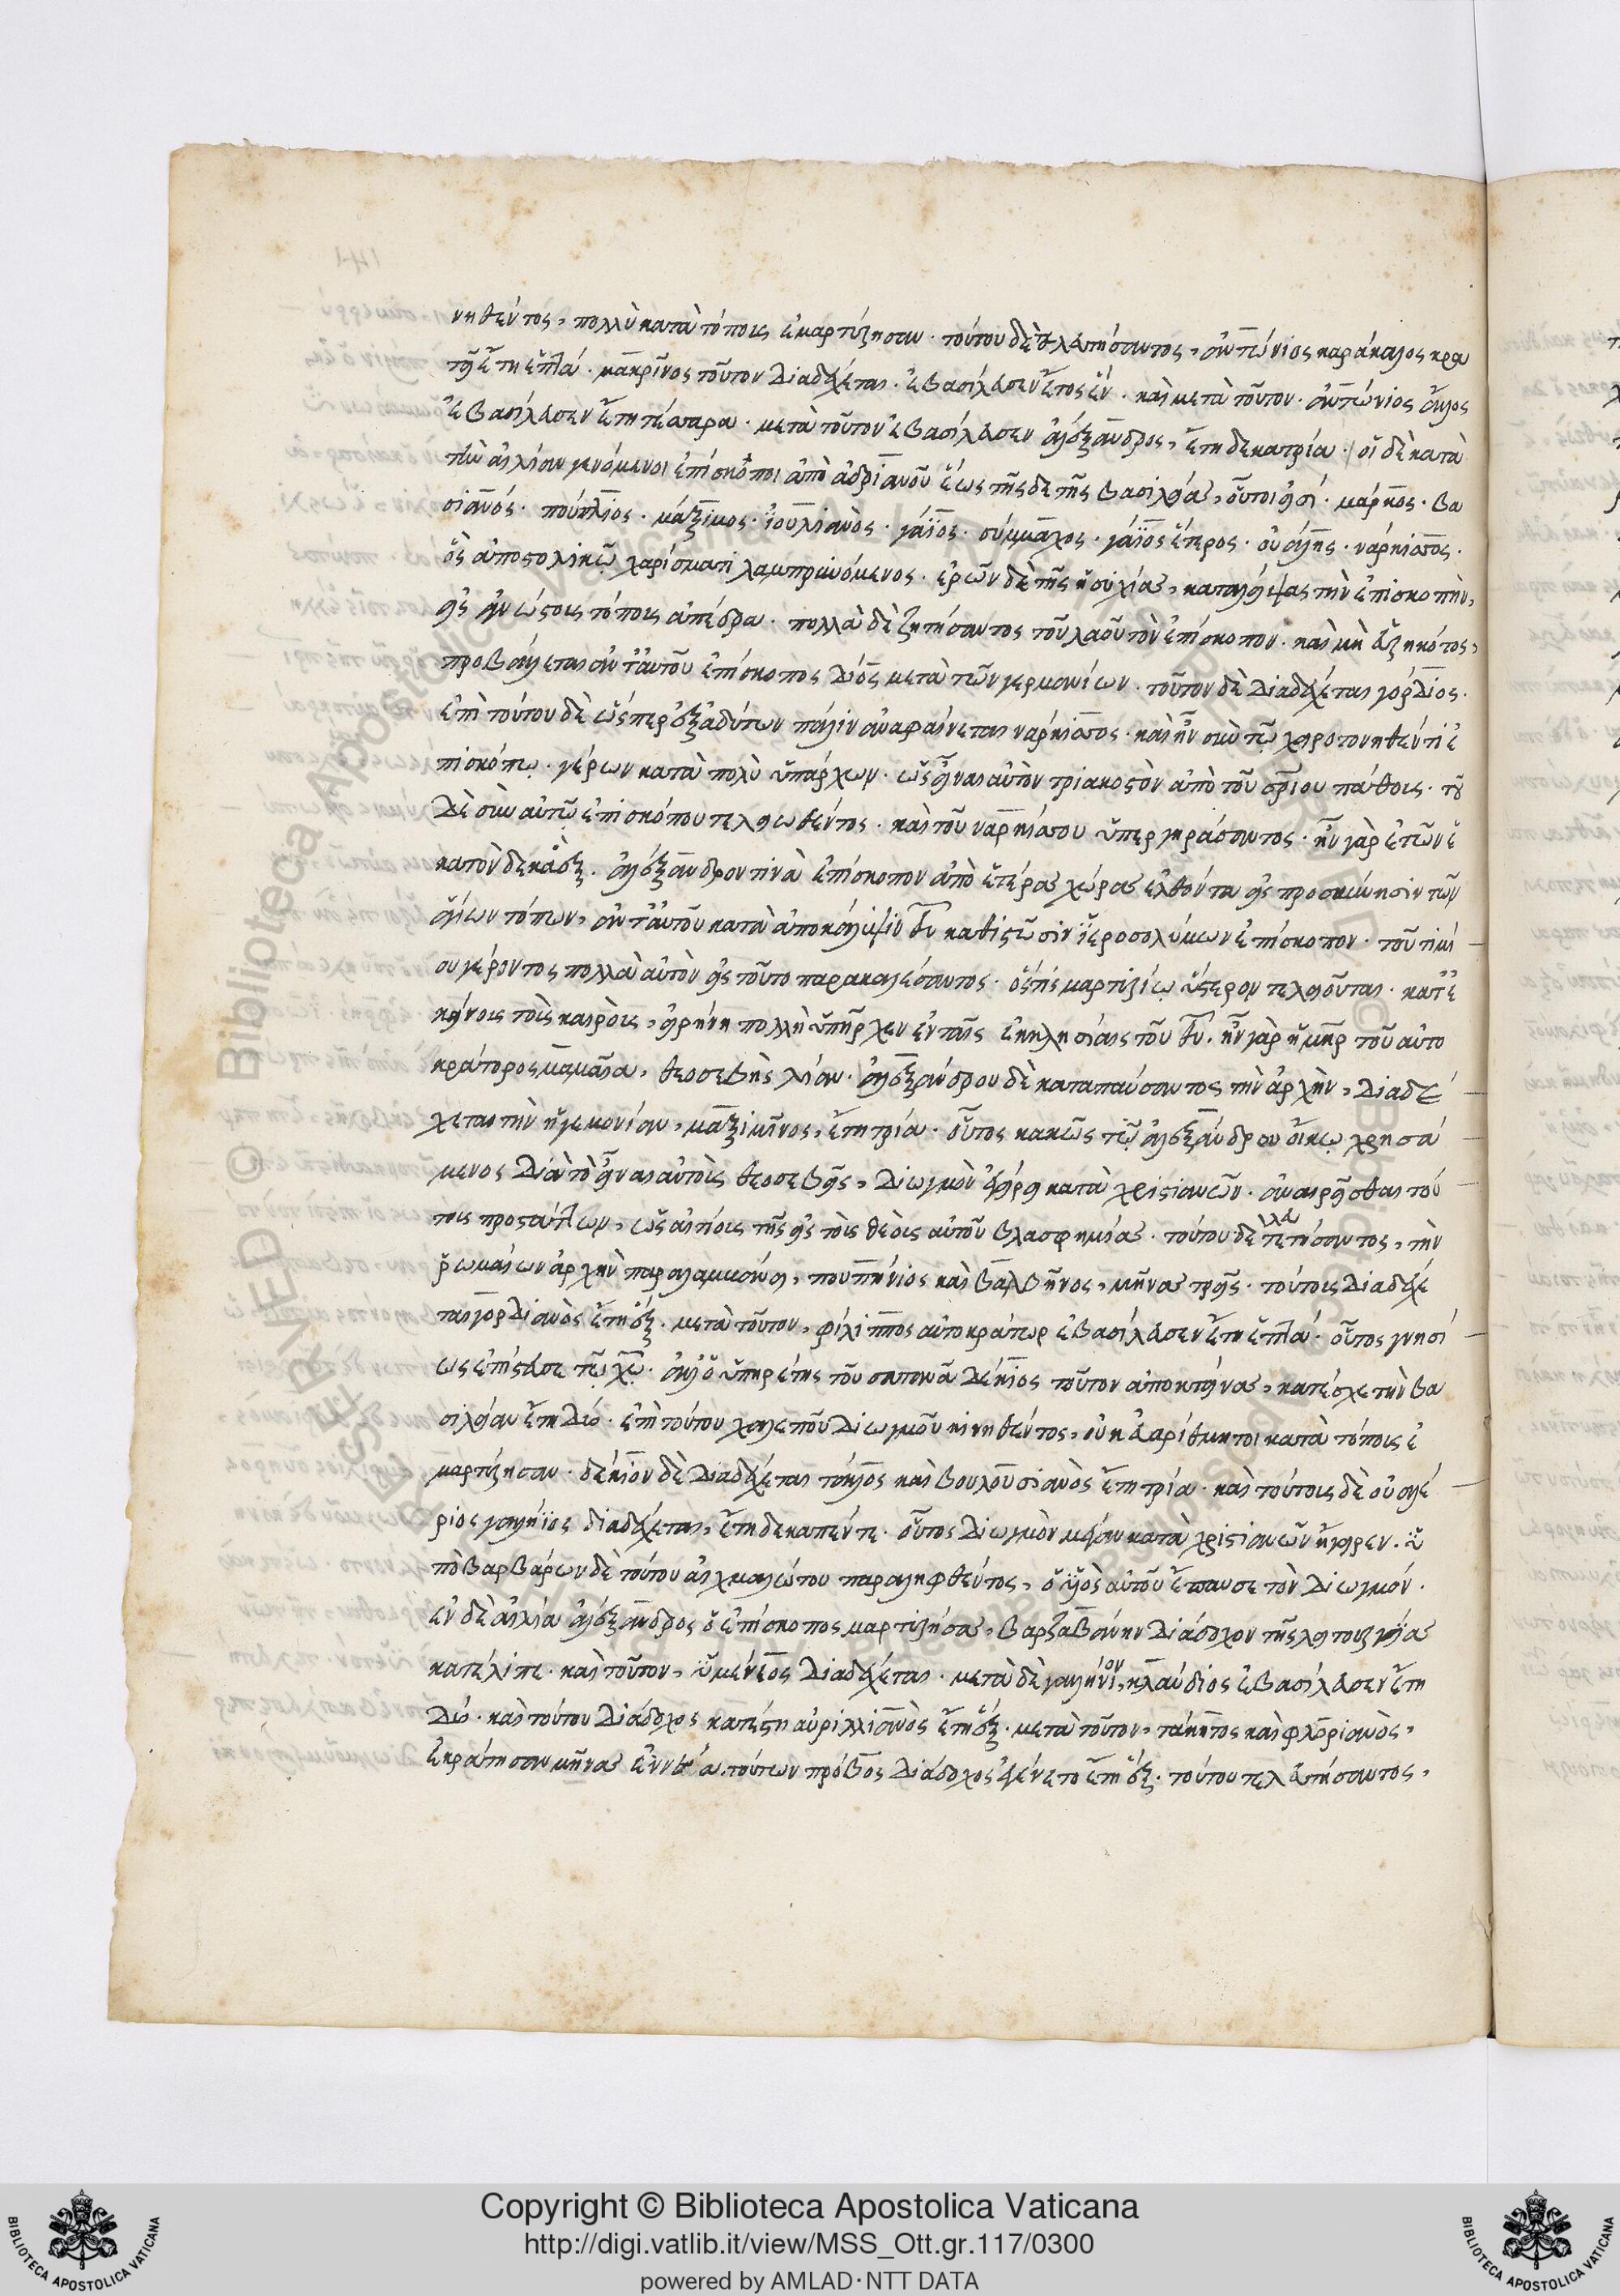 νηθέντος, πολλοὶ κατὰ τόπους ἐμαρτύρησαν. τούτου δὲ τελευτήσαντος, ἀντώνιος καράκαλος κρα
τεῖ ἔτη ἑπτά. μακρῖνος τοῦτον διαδέχεται. ἐβασίλευσεν ἔτος ἕν. καὶ μετὰ τοῦτον. ἀντώνιος ἄλλος
ἐβασίλευσεν ἔτη τέσσαρα. μετὰ τοῦτον ἐβασίλευσεν ἀλέξανδρος, ἔτη δεκατρία. οἱ δὲ κατὰ
τὴν αἰλίαν γενόμενοι ἐπίσκοποι ἀπὸ ἀδριανοῦ ἕως τῆσδε τῆς βασιλείας, οὗτοι εἰσί. μάρκος. κα
σιανός. πούπλιος. μάξιμος. ἰουλιανὸς. γάϊος. σύμμαχος. γάϊος ἕτερος. οὐάλης. νάρκισσος.
ὃς ἀποστολικῷ χαρίσματι λαμπρυνόμενος. ἐρῶν δὲ τῆς ἡσυχίας, καταλείψας τὴν ἐπισκοπὴν,
εἰς ἀγνώστους τόπους ἀπέδρα. πολλὰ δὲ ζητήσαντος τοῦ λαοῦ τὸν ἐπίσκοπον. καὶ μὴ εὑρηκότος,
προβάλλεται ἀντ' αὐτοῦ ἐπίσκοπος δίος μετὰ τῶν γερμανίων. τοῦτον δὲ διαδέχεται γόρδιος.
ἐπὶ τούτου δὲ ὥσπερ ἐξ ἀδύτων πάλιν ἀναφαίνεται νάρκισσος. καὶ ἦν σὺν τῷ χειροτονηθέντι ἐ
πισκόπῳ. γέρων κατὰ πολὺ ὑπάρχων. ὡς εἶναι αὐτὸν τριακοστὸν ἀπὸ τοῦ σρίου πάθους. τοῦ
δὲ σὺν αὐτῷ ἐπισκόπου τελειωθέντος. καὶ τοῦ ναρκίσσου ὑπεργηράσαντος. ἦν γὰρ ἐτῶν ἑ
κατὸν δεκαὲξ. ἀλέξανδρον τινὰ ἐπίσκοπον ἀπὸ ἑτέρας χώρας ἐλθόντα εἰς προσκύνησιν τῶν
ἁγίων τόπων, ἀντ' αὐτοῦ κατὰ ἀποκάλυψιν θυ καθιστῶσιν ἱεροσολύμων ἐπίσκοπον. τοῦ τιμί
ου γέροντος πολλὰ αὐτὸν εἰς τοῦτο παρακαλέσαντος. ὅστις μαρτυρίῳ ὕστερον τελειοῦται. κατ' ἐ
κείνους τοὺς καιροὺς, εἰρήνη πολλὴ ὑπῆρχεν ἐν ταῖς ἐκκλησίαις τοῦ θυ. ἦν γὰρ ἡ μηρ τοῦ αὐτο
κράτορος μαμαῖα, θεοσεβὴς λίαν. ἀλεξάνδρου δὲ καταπαύσαντος τὴν ἀρχὴν, διαδέ
χεται τὴν ἡγεμονίαν, μαξιμῖνος, ἔτη τρία. οὗτος κακῶς τῷ ἀλεξάνδρου οἴκῳ χρησά
μενος διὰ τὸ εἶναι αὐτοὺς θεοσεβεῖς, διωγμὸν ἐγείρει κατὰ χριστιανῶν. ἀναιρεῖσθαι τού
τους προστάττων, ὡς αἰτίους τῆς εἰς τοὺς θεοὺς αὐτοῦ βλασφημίας. τούτου δὲ τελευτήσαντος, τὴν
ῥωμαίων ἀρχὴν παραλαμβάνει, πουπιήνιος καὶ βαλβῆνος, μῆνας τρεῖς. τούτους διαδέχε
ται γορδιανὸς ἔτη ἕξ. μετὰ τοῦτον, φίλιππος αὐτοκράτωρ ἐβασίλευσεν ἔτη ἑπτά. οὗτος γνησί
ως ἐπίστευσε τῷ χῷ. ἀλλ' ὁ ὑπηρέτης τοῦ σατανᾶ δέκιος τοῦτον ἀποκτείνας, κατέσχε τὴν βα
σιλείαν ἔτη δύο. ἐπὶ τούτου χαλεποῦ διωγμοῦ κινηθέντος, οὐκ εὐαρίθμητοι κατὰ τόπους ἐ
μαρτύρησαν. δέκιον δὲ διαδέχεται γάλλος καὶ βουλουσιανὸς ἔτη τρία. καὶ τούτους δὲ οὐαλέ
ριος γαλήϊος διαδέχεται, ἔτη δεκαπέντε. οὗτος διωγμὸν μέγαν κατὰ χριστιανῶν ἤγειρεν. ὑ
πὸ βαρβάρων δὲ τούτου αἰχμαλώτου παραληφθέντος, ὁ υἱὸς αὐτοῦ ἔπαυσε τὸν διωγμόν.
ἐν δὲ αἰλία ἀλέξανδρος ὁ ἐπίσκοπος μαρτυρήσας, βαρζαβάνην διάδοχον τῆς λειτουργίας
κατέλιπε. καὶ τοῦτον, ὑμέναιος διαδέχεται. μετὰ δὲ γαλήνιον, κλαύδιος ἐβασίλευσεν ἔτη
δύο. καὶ τούτου διάδοχος κατέστη αὐριλλιανὸς ἔτη ἕξ. μετὰ τοῦτον, τάκητος καὶ φλοριανὸς,
ἐκράτησαν μῆνας ἐννέα. τούτων πρόβος διάδοχος ἐγένετο ἔτη ἕξ. τούτου τελευτήσαντος,
Copyright © Biblioteca Apostolica Vaticana
http://digi.vatlib.it/view/MSS_Ott.gr.117/0300
powered by AMLAD·NTT DATA
BIBLIOTECA APOSTOLICA VATICANA
BIBLIOTECA APOSTOLICA VATICANA